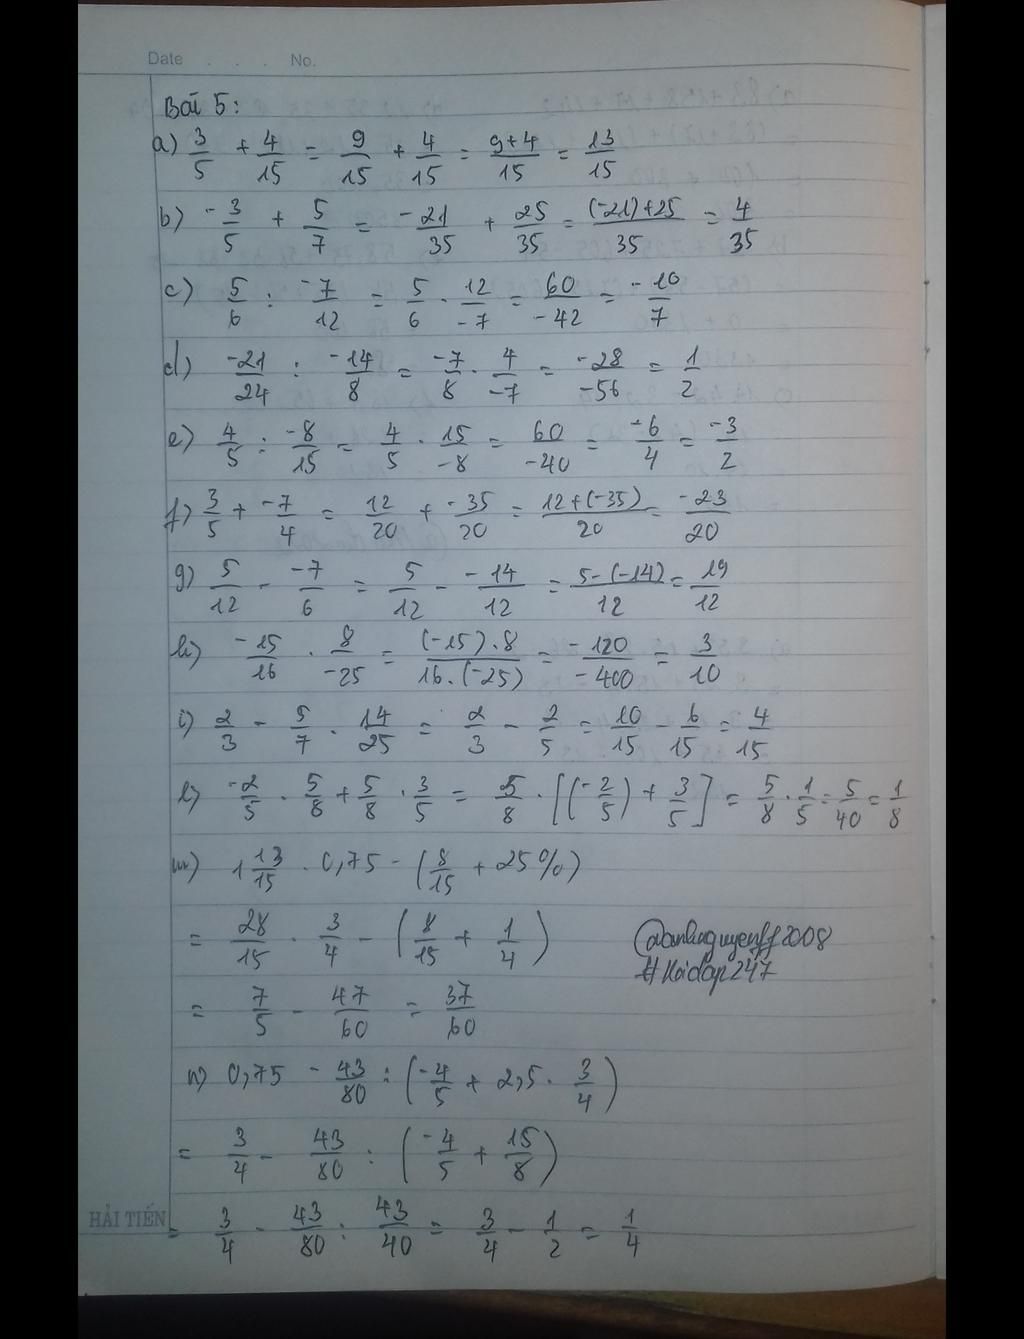 Date . . . No.
Bài 5:
a) 3/5 + 4/15 = 9/15 + 4/15 = 9+4/15 = 13/15
b) -3/5 + 5/7 = -21/35 + 25/35 = (-21)+25/35 = 4/35
c) 5/6 : -7/12 = 5/6 . 12/-7 = 60/-42 = -10/7
d) -21/24 : -14/8 = -7/8 . 4/-7 = -28/-56 = 1/2
e) 4/5 : -8/15 = 4/5 . 15/-8 = 60/-40 = -6/4 = -3/2
f) 3/5 + -7/4 = 12/20 + -35/20 = 12+(-35)/20 = -23/20
g) 5/12 - -7/6 = 5/12 - -14/12 = 5-(-14)/12 = 19/12
h) -15/16 . 8/-25 = (-15).8/16.(-25) = -120/-400 = 3/10
i) 2/3 - 5/7 . 14/25 = 2/3 - 2/5 = 10/15 - 6/15 = 4/15
l) -2/5 . 5/8 + 5/8 . 3/5 = 5/8 . [(-2/5) + 3/5] = 5/8 . 1/5 = 5/40 = 1/8
m) 1 13/15 . 0,75 - (8/15 + 25%)
= 28/15 . 3/4 - (8/15 + 1/4)
@danhnguyenff2008
#Hoidap247
= 7/5 - 47/60 = 37/60
n) 0,75 - 43/80 : (-4/5 + 2,5 . 3/4)
= 3/4 - 43/80 : (-4/5 + 15/8)
HẢI TIẾN
= 3/4 - 43/80 : 43/40 = 3/4 - 1/2 = 1/4